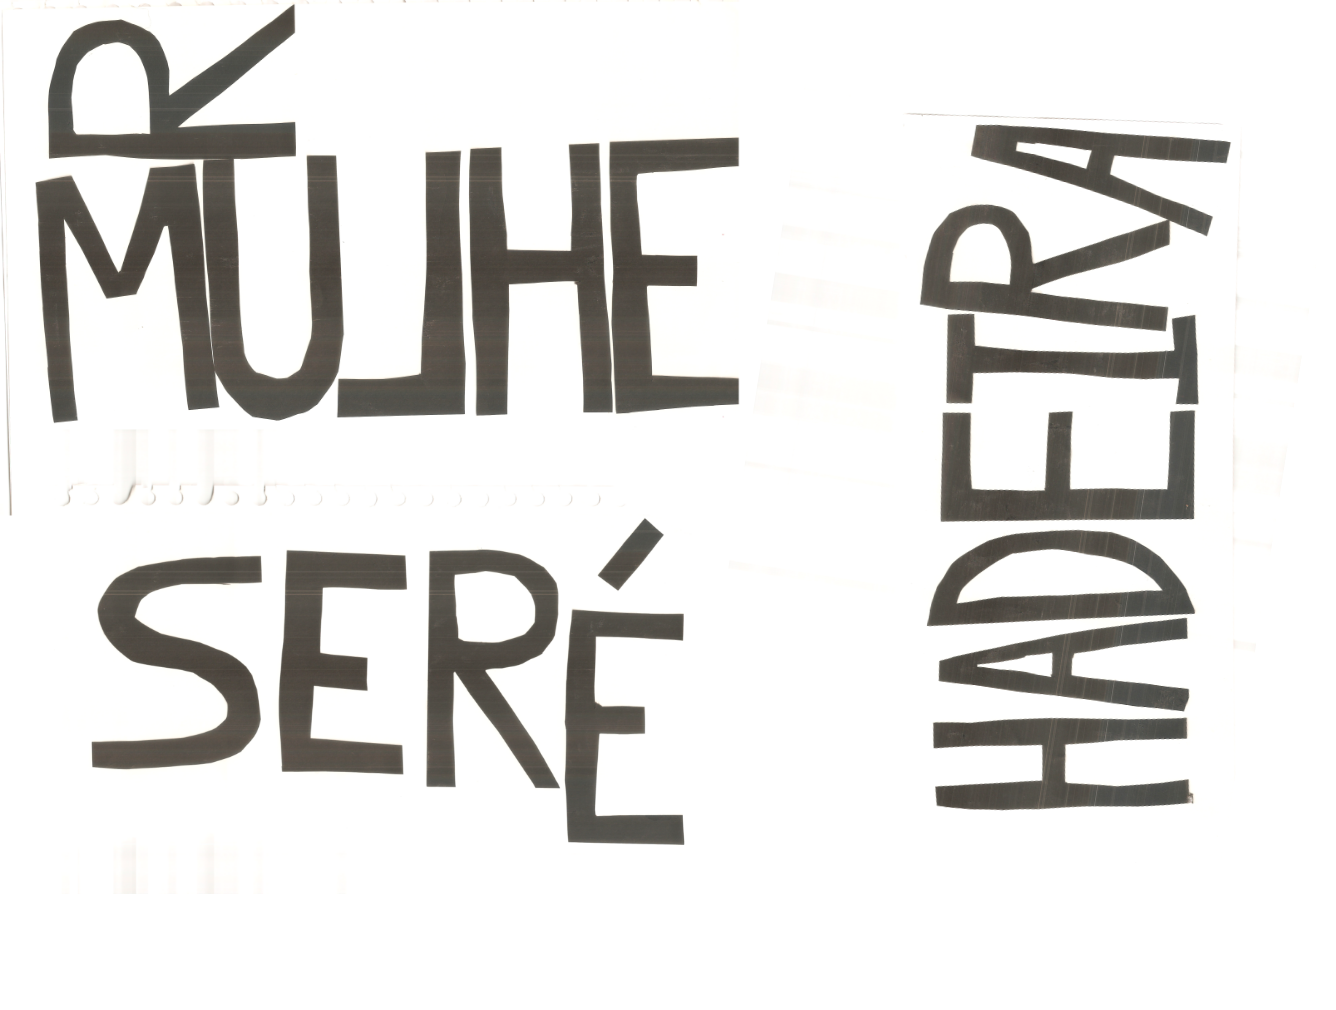 R
MULHE
SERÉ
HADEIRA